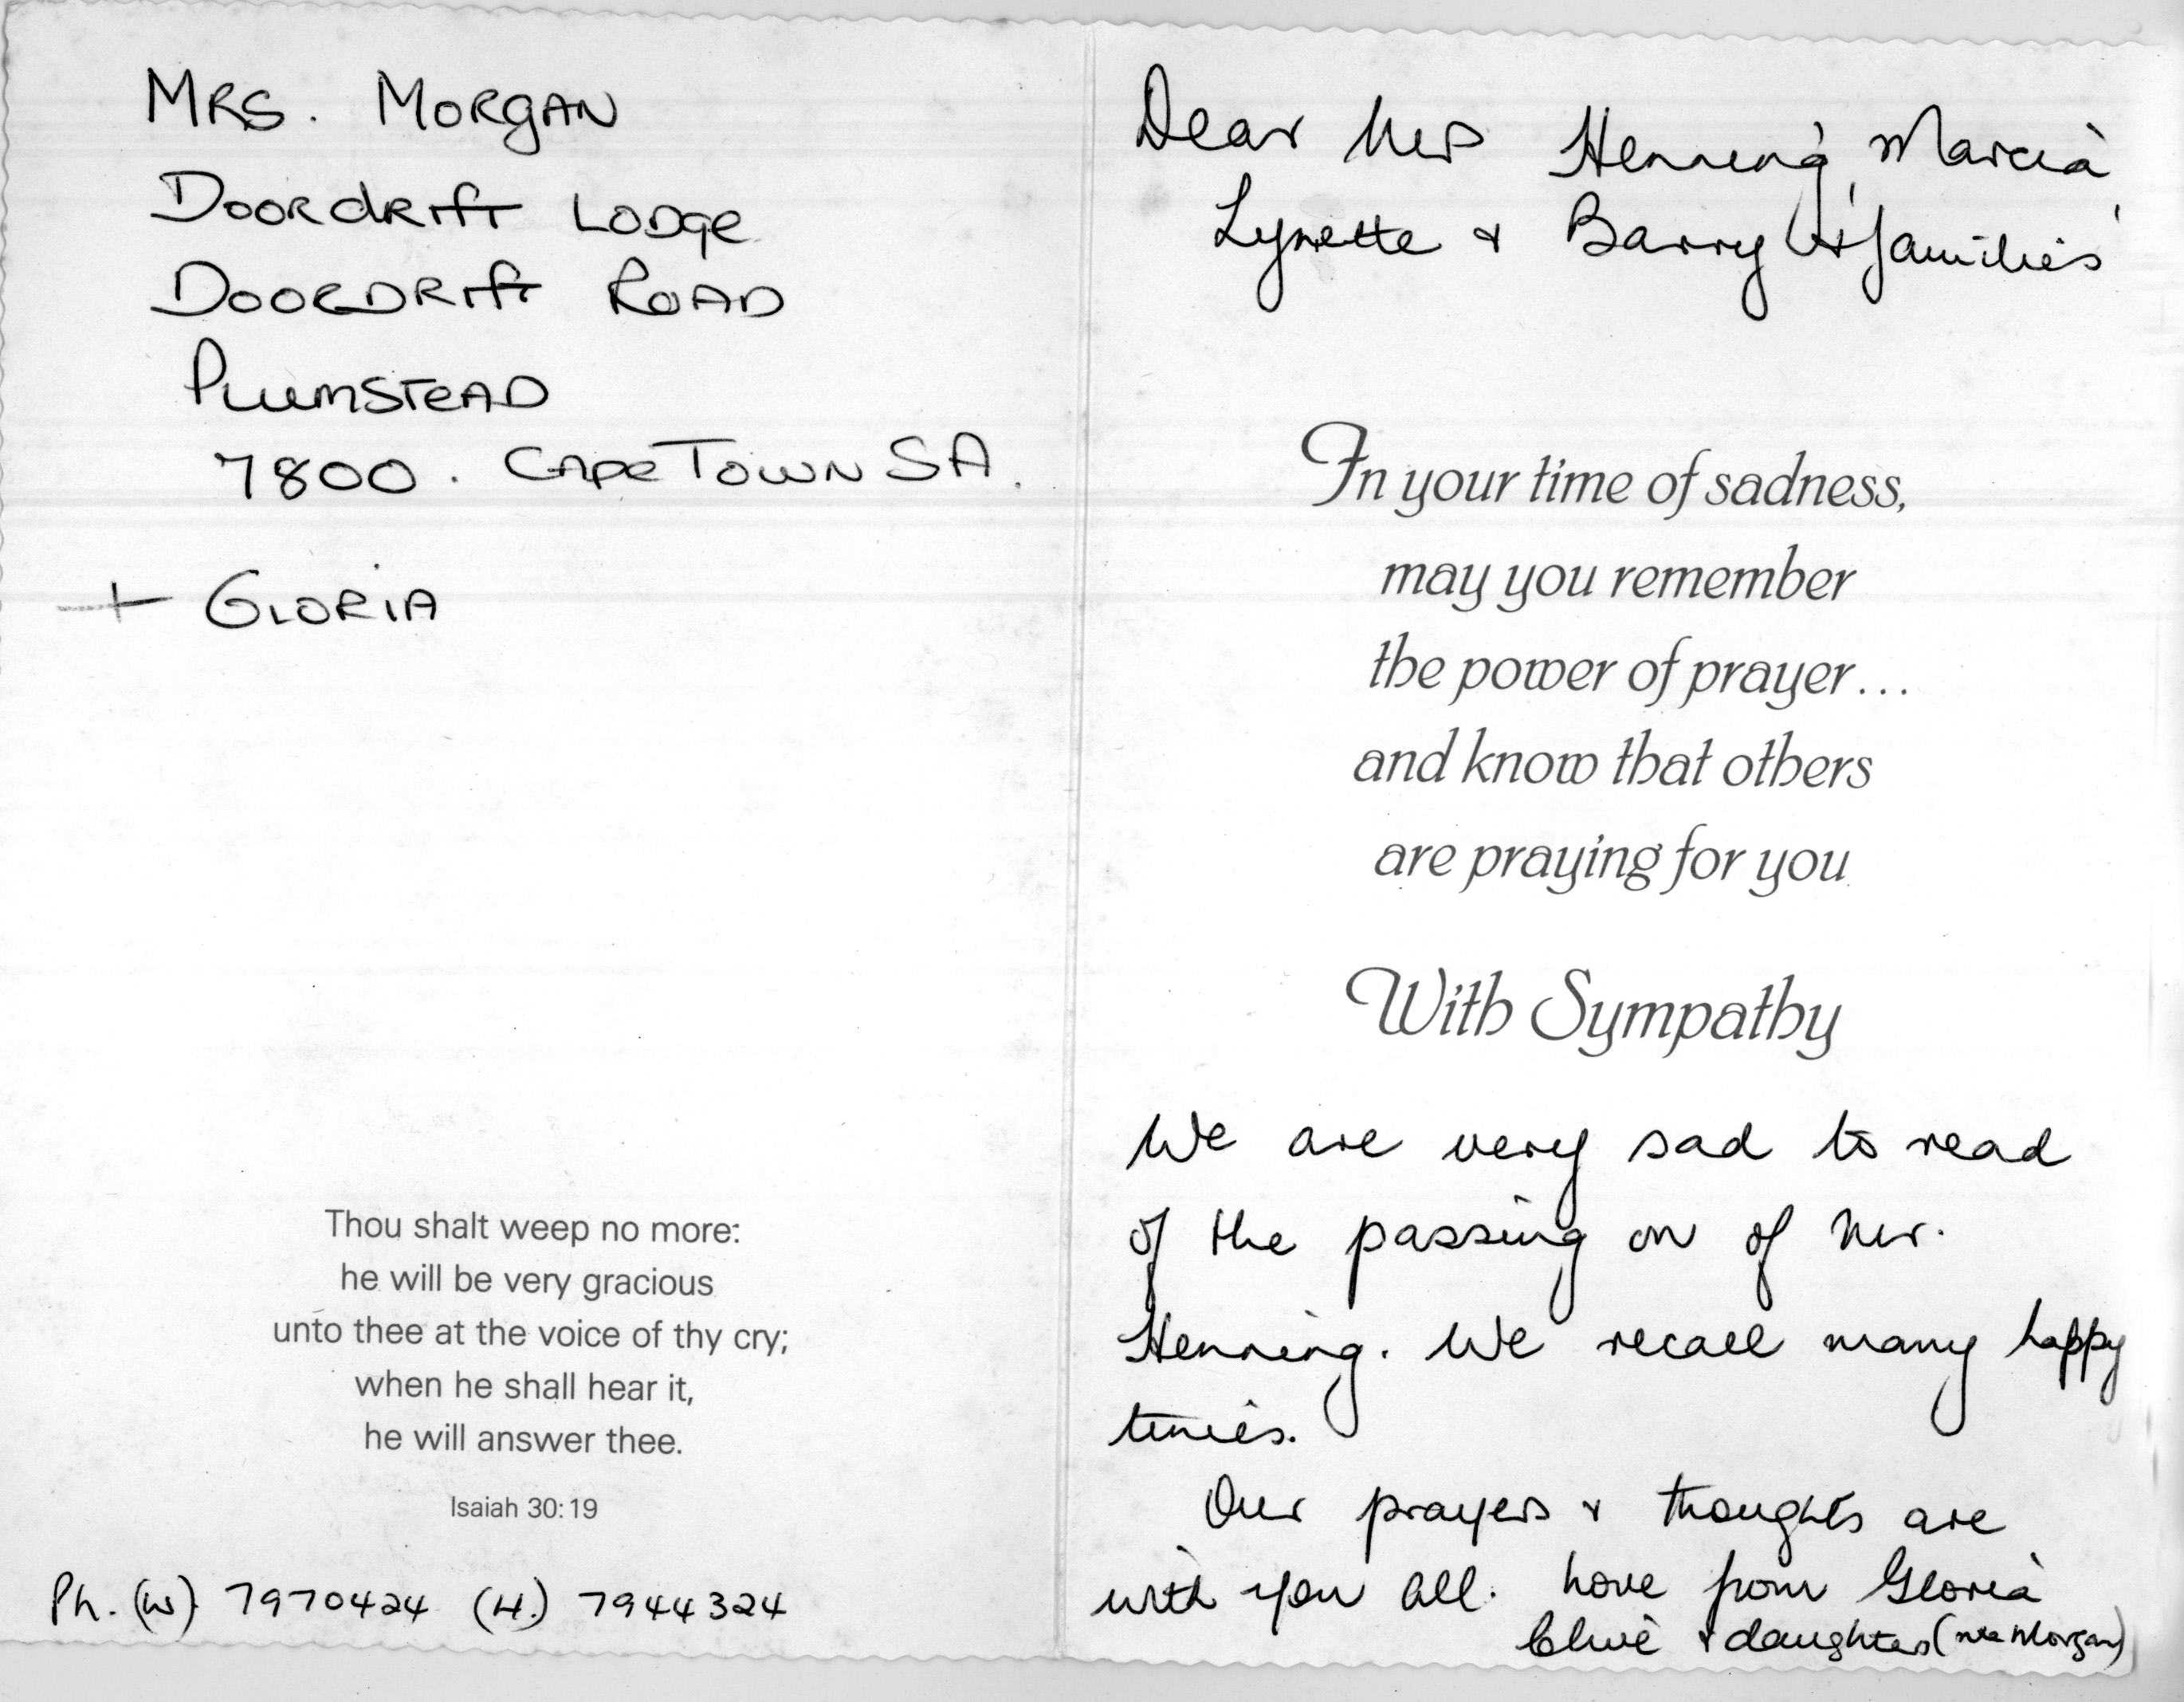 MRS. MORGAN
DOORDRIFT LODGE
DOORDRIFT ROAD
PLUMSTEAD
7800. CAPE TOWN SA.
+ GLORIA
Thou shalt weep no more:
he will be very gracious
unto thee at the voice of thy cry;
when he shall hear it,
he will answer thee.
Isaiah 30:19
Ph. (W) 7970424 (H.) 7944324
Dear Mrs Henning, Marcia,
Lynette & Barry & families
In your time of sadness,
may you remember
the power of prayer...
and know that others
are praying for you
With Sympathy
We are very sad to read
of the passing on of Mr.
Henning. We recall many happy
times.
Our prayers & thoughts are
with you all. Love from Gloria
Clive & daughters (nee Morgan)